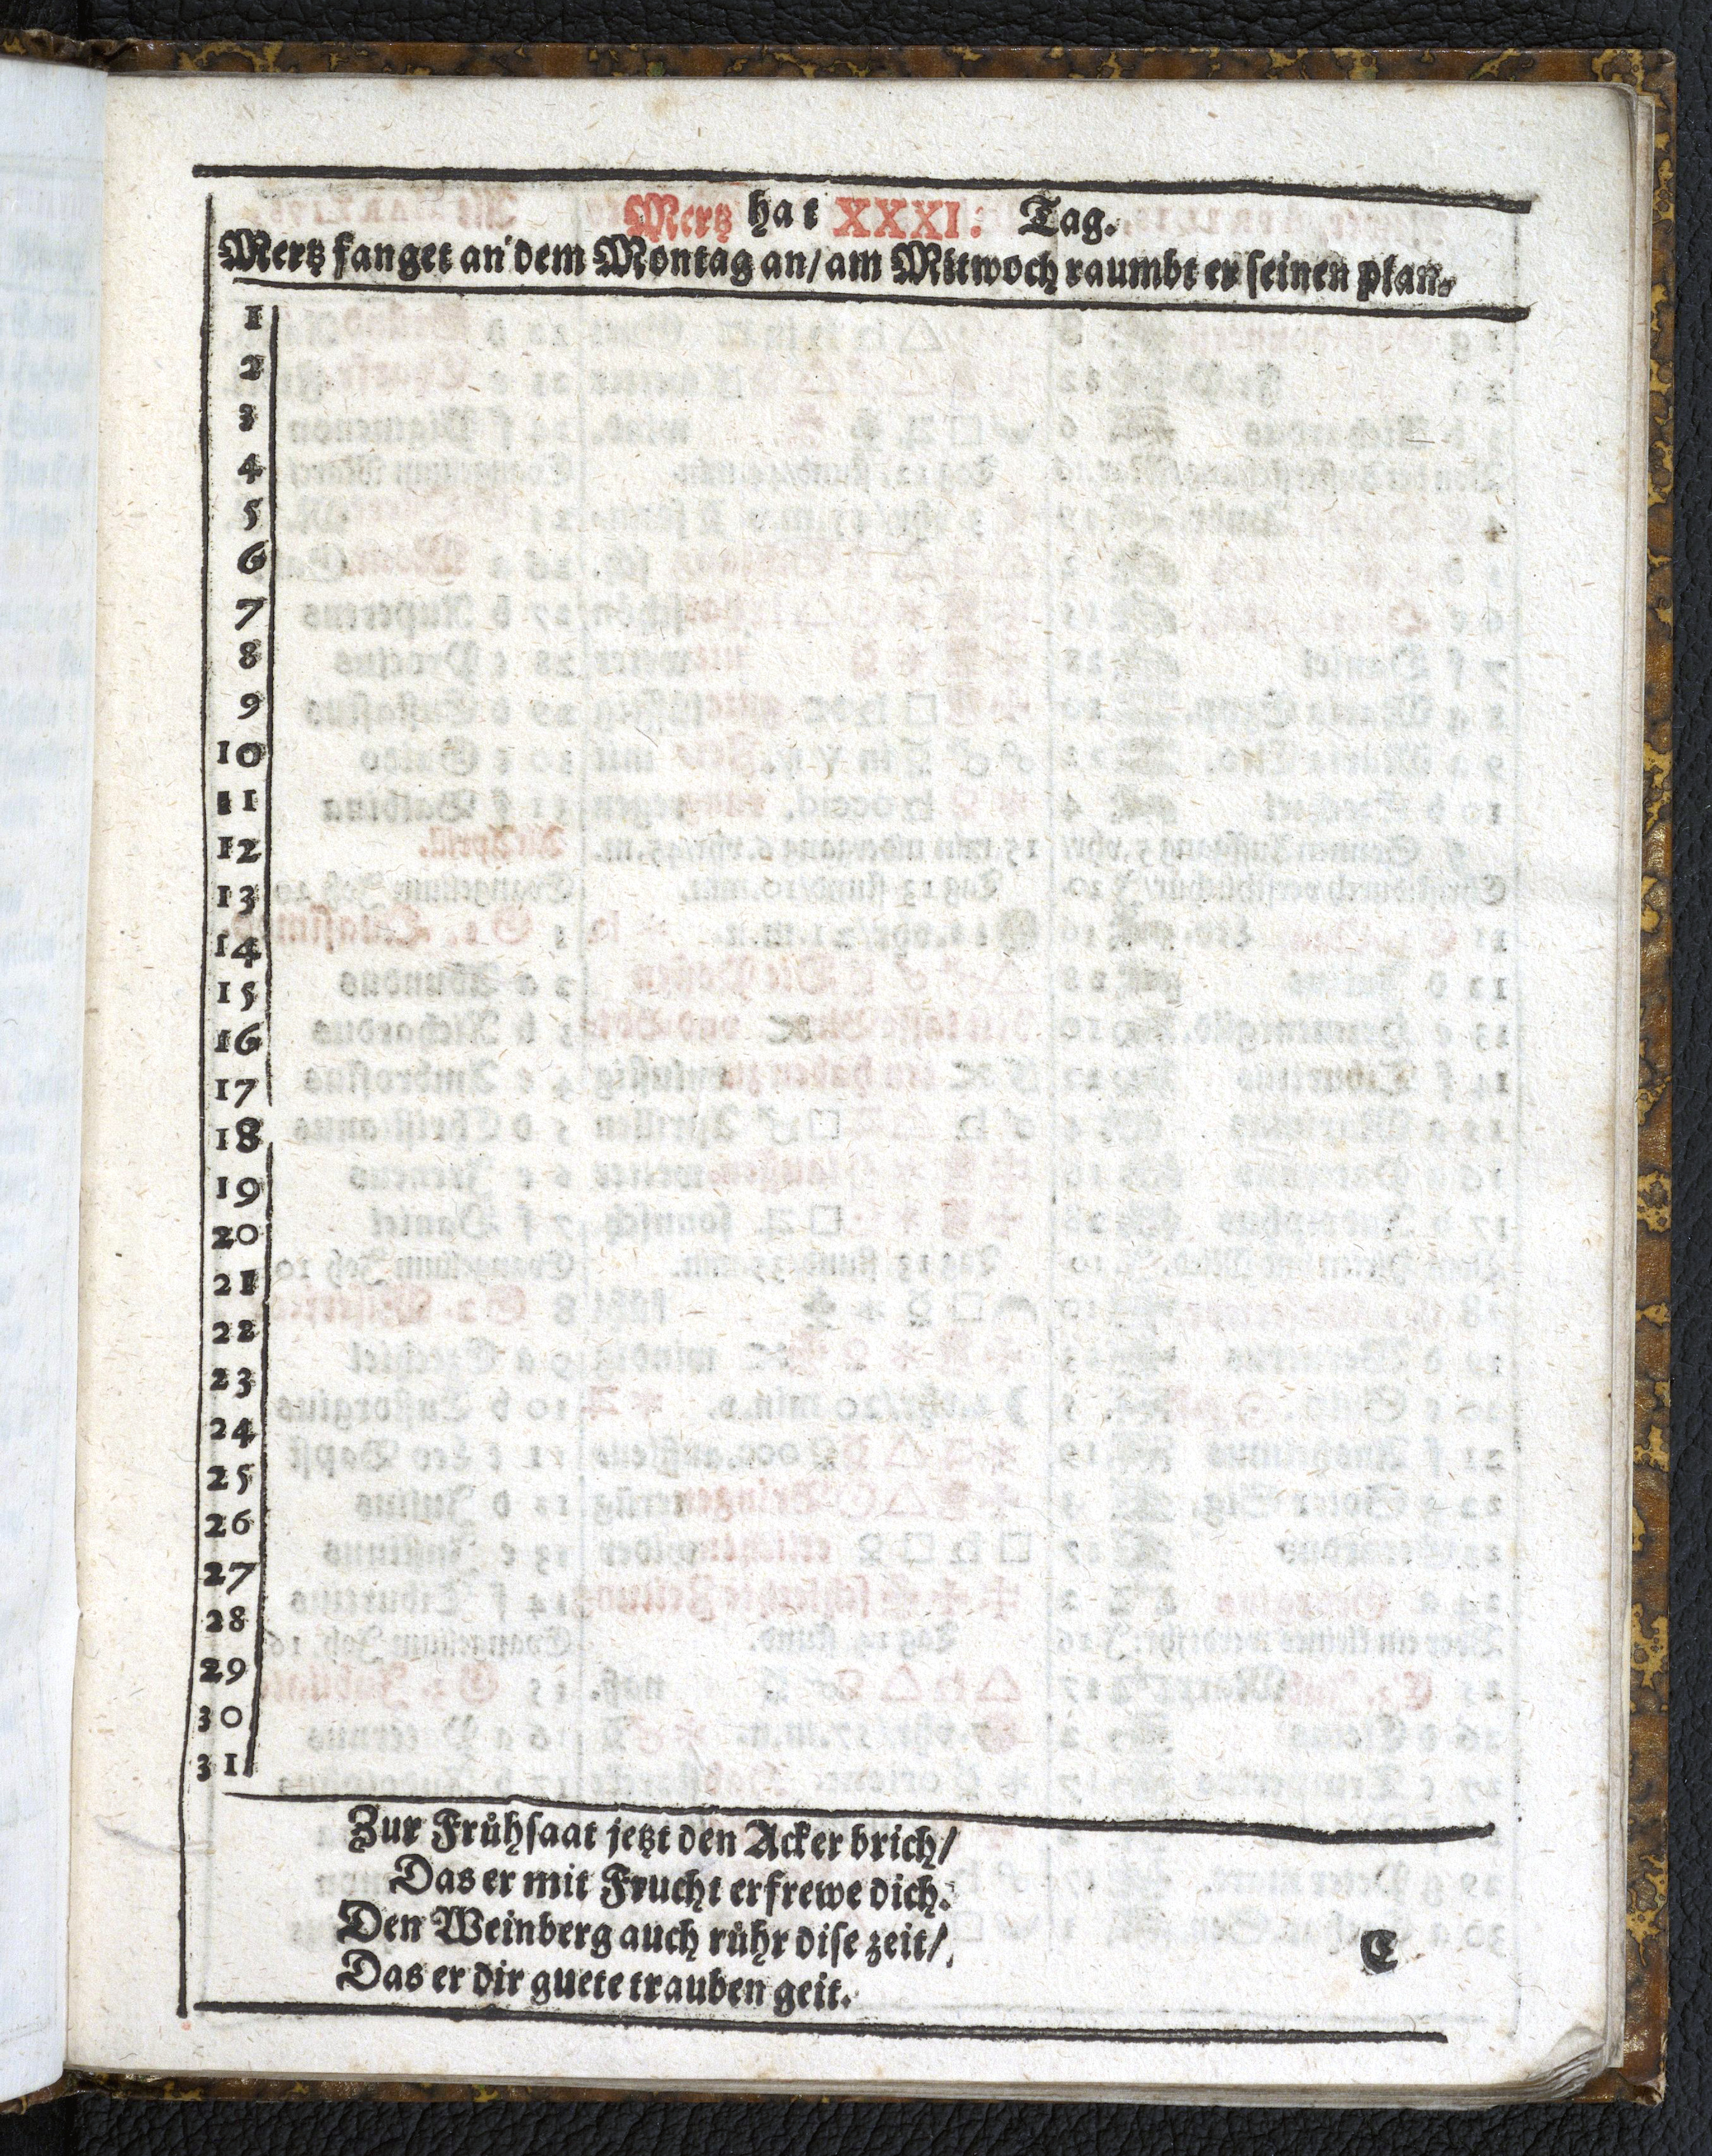 Mertz hat XXXI. Tag.
Mertz fanget an dem Montag an/ am Mitwoch raumbt er seinen plan.
1
2
3
4
5
6
7
8
9
10
11
12
13
14
15
16
17
18
19
20
21
22
23
24
25
26
27
28
29
30
31
Zur Frůhsaat jetzt den Acker brich/
Das er mit Frucht erfrewe dich.
Den Weinberg auch růhr dise zeit/
Das er dir guete trauben geit.
C